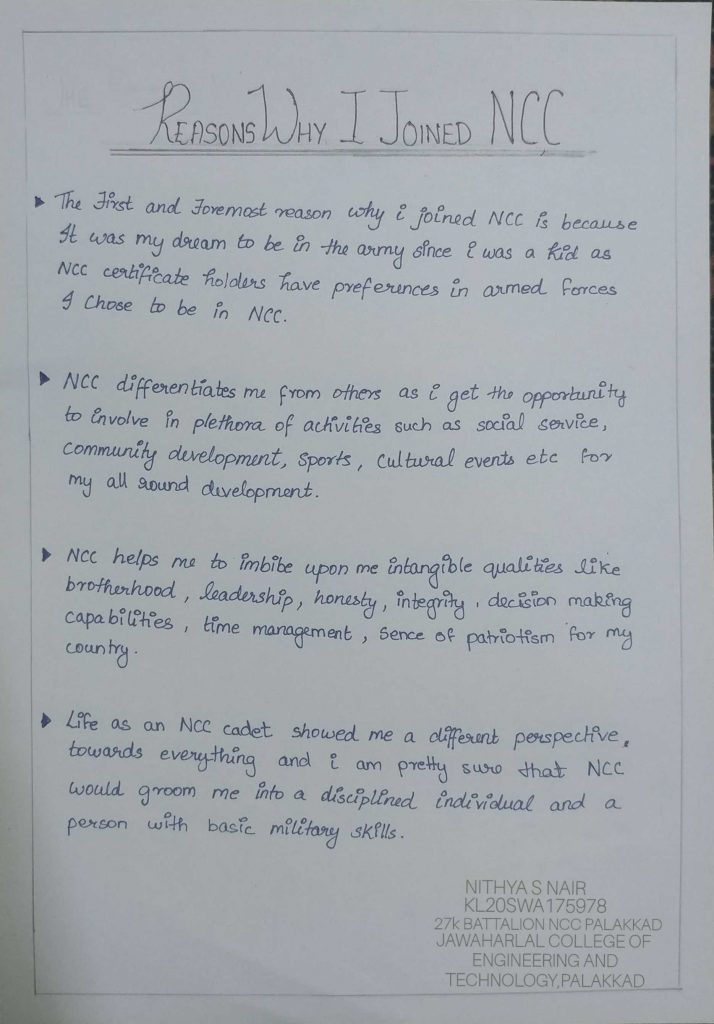 REASONS WHY I JOINED NCC
The First and Foremost reason why i joined NCC is because
It was my dream to be in the army since i was a kid as
NCC certificate holders have preferences in armed forces
I chose to be in NCC.
NCC differentiates me from others as i get the opportunity
to involve in plethora of activities such as social service,
community development, sports, cultural events etc for
my all round development.
NCC helps me to imbibe upon me intangible qualities like
brotherhood, leadership, honesty, integrity, decision making
capabilities, time management, sence of patriotism for my
country.
Life as an NCC cadet showed me a different perspective,
towards everything and i am pretty sure that NCC
would groom me into a disciplined individual and a
person with basic military skills.
NITHYA S NAIR
KL20SWA175978
27k BATTALION NCC PALAKKAD
JAWAHARLAL COLLEGE OF
ENGINEERING AND
TECHNOLOGY,PALAKKAD